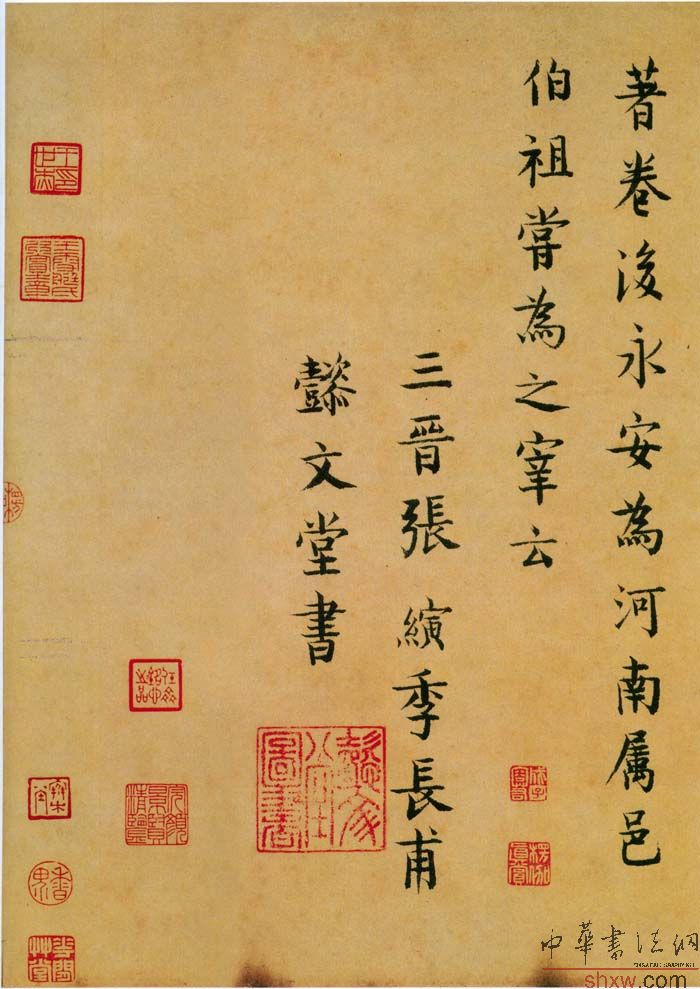 著卷後永安為河南属邑
伯祖嘗為之宰云
三晋張縯季長甫
懿文堂書
中華書法網
shxw.com